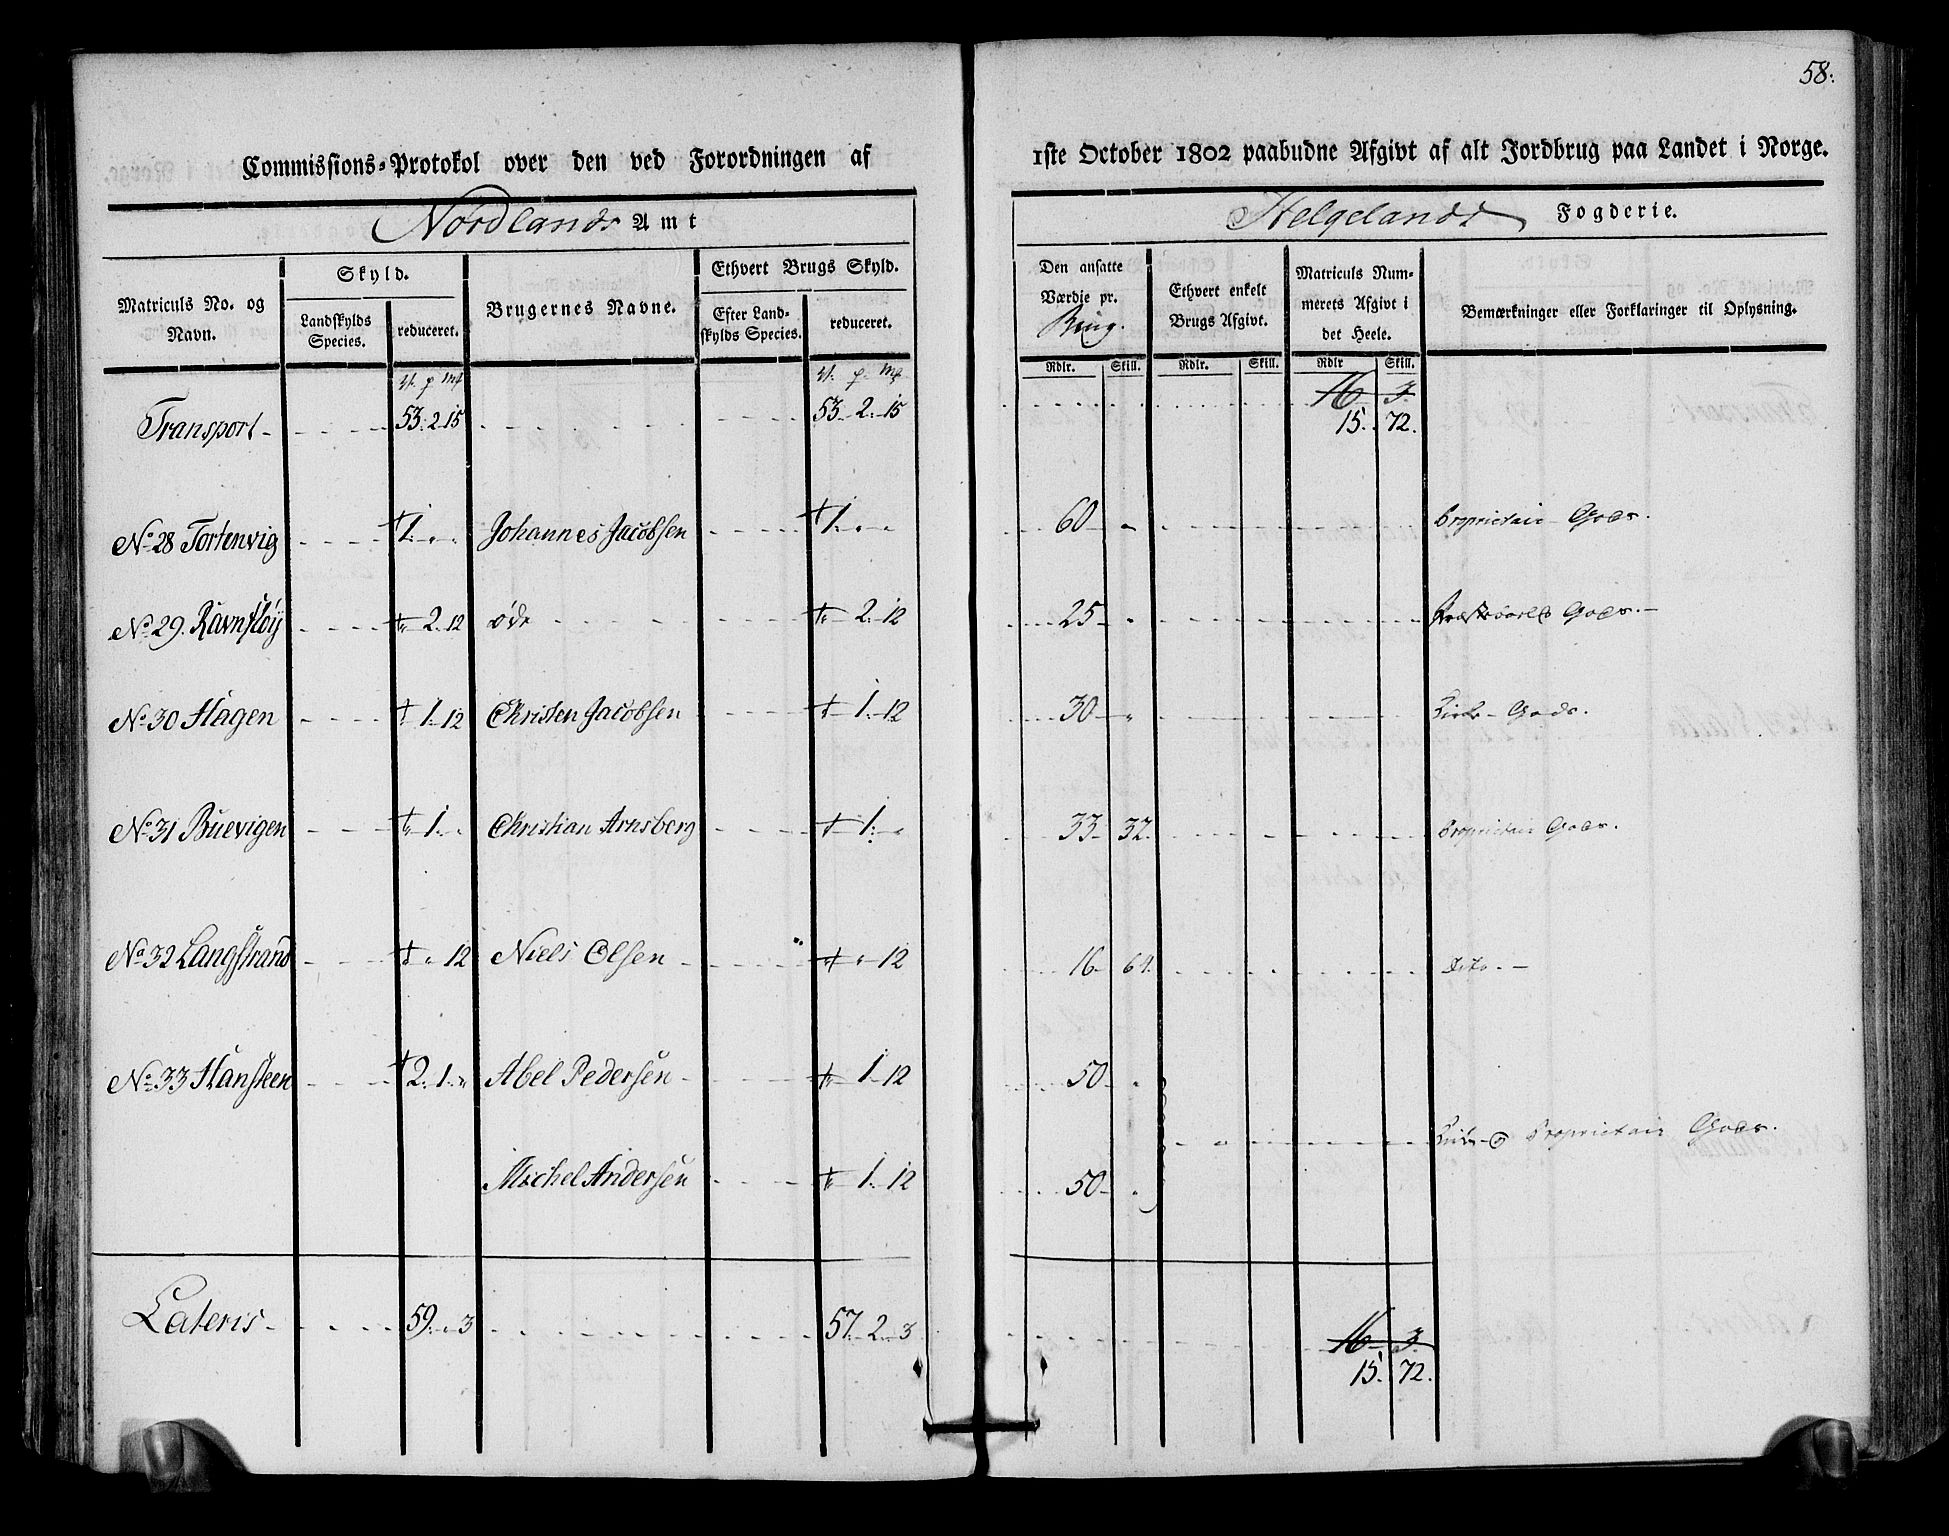 58.
Commissions-Protokol over den ved Forordningen af 1ste October 1802 paabudne Afgivt af alt Jordbrug paa Landet i Norge.
Nordlands Amt Helgelands Fogderie.
Matriculs No. og Navn. Skyld. Landskylds Species. reduceret. Brugernes Navne. Ethvert Brugs Skyld. Efter Landskylds Species. reduceret. Den ansatte Værdie pr. Brug. Ethvert enkelt Brugs Afgivt. Matriculs Nummerets Afgivt i det Heele. Bemærkninger eller Forklaringer til Oplysning.
Rdlr. Skill. Rdlr. Skill. Rdlr Skill.
16 3
Transport 53. 2. 15 53. 2. 15 15. 72.
No 28 Tortenvig 1. Johannes Jacobsen 1. 60 Proprietair Gods.
No 29. Ravnsløÿ 2. 12 øde 2. 12 25 Gods.
No 30 Hagen 1. 12 Christen Jacobsen 1. 12 30 Gods.
No 31 Buevigen 1. Christian Arnsberg 1. 33 32. Proprietair Gods.
No 32 Langstrand 12 Niels Olsen 12 16 64. Dito.
No 33 Hansteen 2. 1. Abel Pedersen 1. 12 50
Proprietair Gods.
Michel Andersen 1. 12 50
Lateris 59. 3 57. 2. 3 16 3.
15. 72.